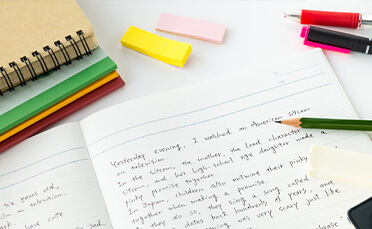 Yesterday evening, I watched an American sitcom
on television.
In the sitcom, the mother, the lead character
and her high-school age daughter made a
pinky promise together.
In Japan, children also entwine their pinky
together when making a promise.
they do so, they sing a song called
dates back hundreds of years, and
was very scary just like
phrase
six years old,
on television.
have cute